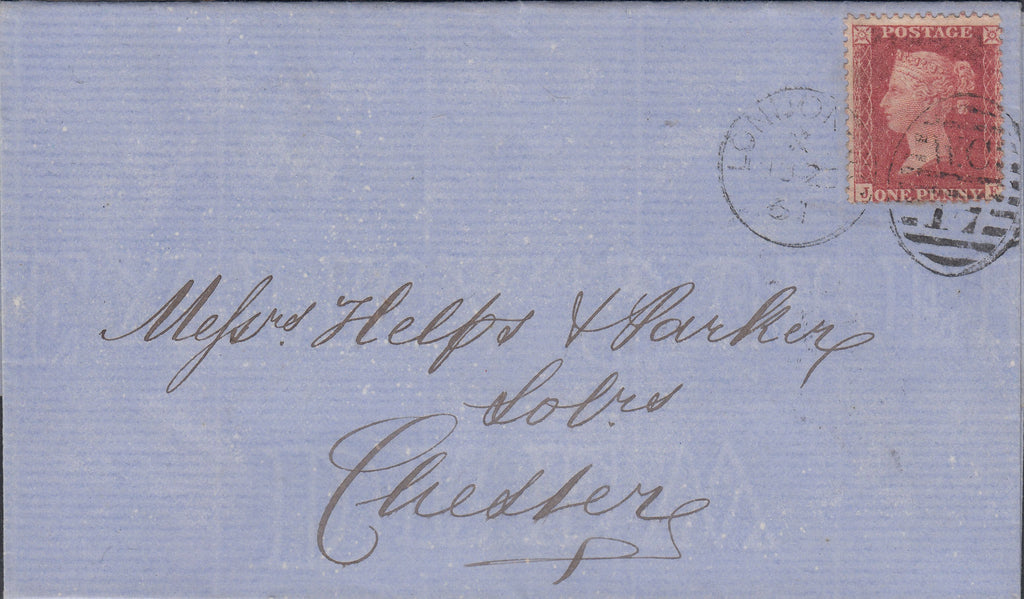 POSTAGE
J ONE PENNY E
LONDON
61
17
Messrs. Helps & Parker
Solrs
Chester